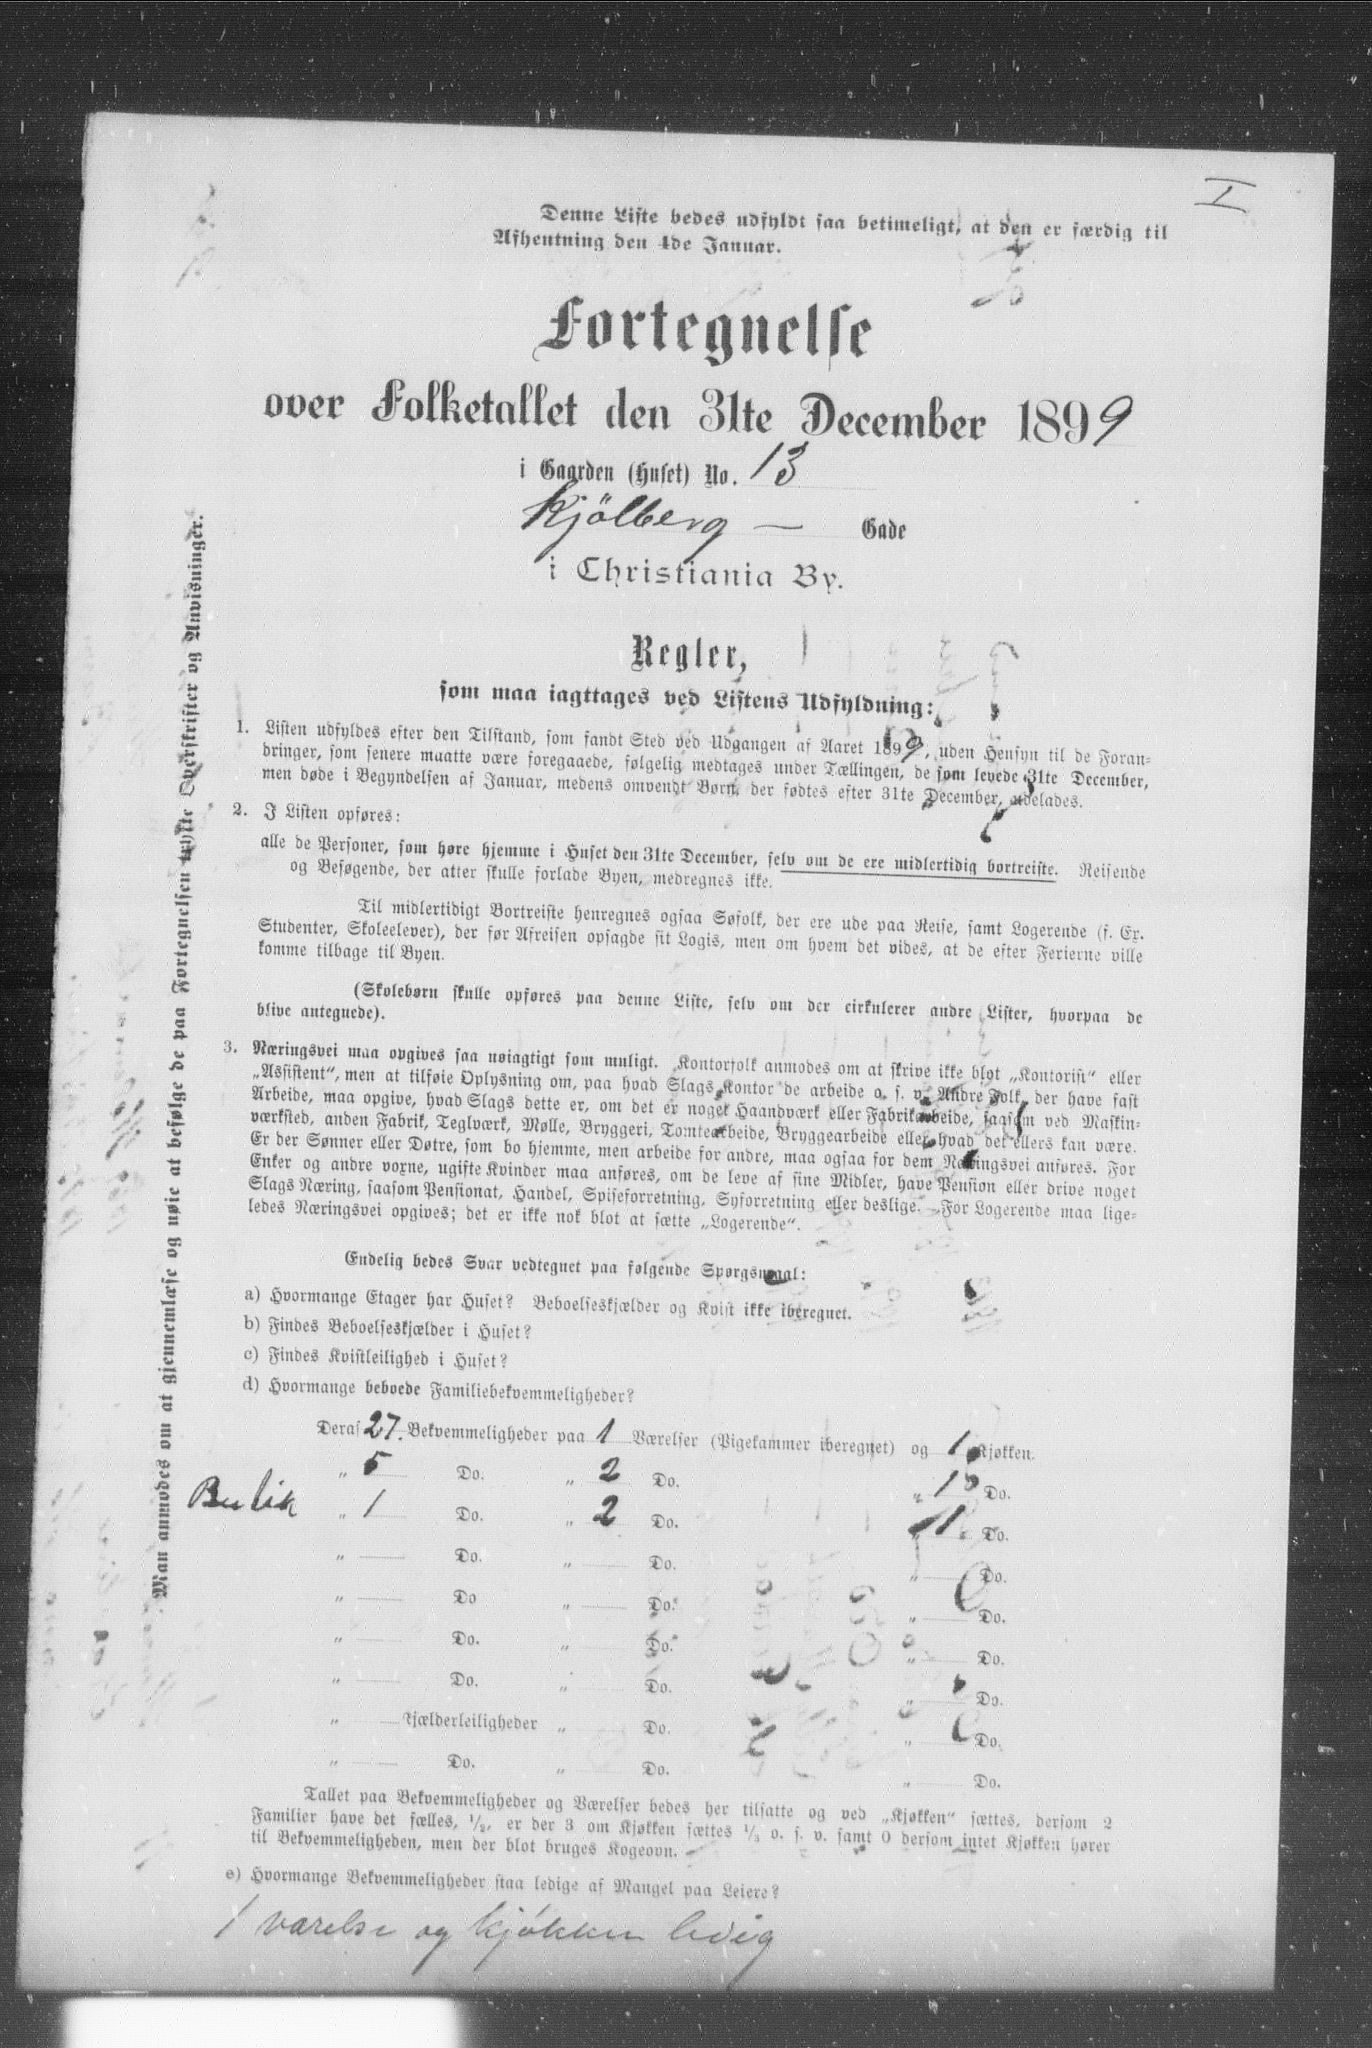 I
Denne Liste bedes udfyldt saa betimeligt, at den er færdig til
Afhentning den 4de Januar.
Fortegnelse
over Folketallet den 31te December 1899
i Gaarden (Huset) No. 13
Kjölberg — Gade
i Christiania By.
Regler,
som maa iagttages ved Listens Udfyldning:
1. Listen udfyldes efter den Tilstand, som fandt Sted ved Udgangen af Aaret 1899, uden Hensyn til de Foran-
dringer, som senere maatte være foregaaede, følgelig medtages under Tællingen, de som levede 31te December,
men døde i Begyndelsen af Januar, medens omvendt Børn, der fødtes efter 31te December, udelades.
2. I Listen opføres:
alle de Personer, som høre hjemme i Huset den 31te December, selv om de ere midlertidig bortreiste. Reisende
og Besøgende, der atter skulle forlade Byen, medregnes ikke.
Til midlertidigt Bortreiste henregnes ogsaa Søfolk, der ere ude paa Reise, samt Logerende (f. Ex.
Studenter, Skoleelever), der før Afreisen opsagde sit Logis, men om hvem det vides, at de efter Ferierne ville
komme tilbage til Byen.
(Skolebørn skulle opføres paa denne Liste, selv om der cirkulerer andre Lister, hvorpaa de
blive antegnede).
3. Næringsvei maa opgives saa nøiagtigt som muligt. Kontorfolk anmodes om at skrive ikke blot „Kontorist“ eller
„Assistent“, men at tilføie Oplysning om, paa hvad Slags Kontor de arbeide o. s. v. Andre Folk, der have fast
Arbeide, maa opgive, hvad Slags dette er, om det er noget Haandværk eller Fabrikarbeide, saasom ved Maskin-
værksted, anden Fabrik, Teglværk, Mølle, Bryggeri, Tomtearbeide, Bryggearbeide eller hvad det ellers kan være.
Er der Sønner eller Døtre, som bo hjemme, men arbeide for andre, maa ogsaa for dem Næringsvei anføres. For
Enker og andre voxne, ugifte Kvinder maa anføres, om de leve af sine Midler, have Pension eller drive noget
Slags Næring, saasom Pensionat, Handel, Spiseforretning, Syforretning eller deslige. For Logerende maa lige-
ledes Næringsvei opgives; det er ikke nok blot at sætte „Logerende“.
Endelig bedes Svar vedtegnet paa følgende Spørgsmaal:
a) Hvormange Etager har Huset? Beboelseskjælder og Kvist ikke iberegnet.
b) Findes Beboelseskjælder i Huset?
c) Findes Kvistleilighed i Huset?
d) Hvormange beboede Familiebekvemmeligheder?
Deraf 27. Bekvemmeligheder paa 1 Værelser (Pigekammer iberegnet) og 1 Kjøkken.
„ 5 Do. „ 2 Do. „ 1 Do.
Butik „ 1 Do. „ 2 Do. „ 1 Do.
„ Do. „ Do. „ Do.
„ Do „ Do. „ Do.
„ Do. „ Do. „ Do.
„ Do. „ Do. „ Do.
„ Kjælderleiligheder „ Do. „ Do.
„ Do. „ Do. „ Do.
Tallet paa Bekvemmeligheder og Værelser bedes her tilsatte og ved „Kjøkken“ sættes, dersom 2
Familier have det fælles, 1/2, er der 3 om Kjøkken sættes 1/3 o. s. v. samt 0 dersom intet Kjøkken hører
til Bekvemmeligheden, men der blot bruges Kogeovn.
e) Hvormange Bekvemmeligheder staa ledige af Mangel paa Leiere?
1 værelse og kjøkken ledig
Man anmodes om at gjennemlæse og nøie at befølge de paa Fortegnelsen trykte Overskrifter og Anvisninger.